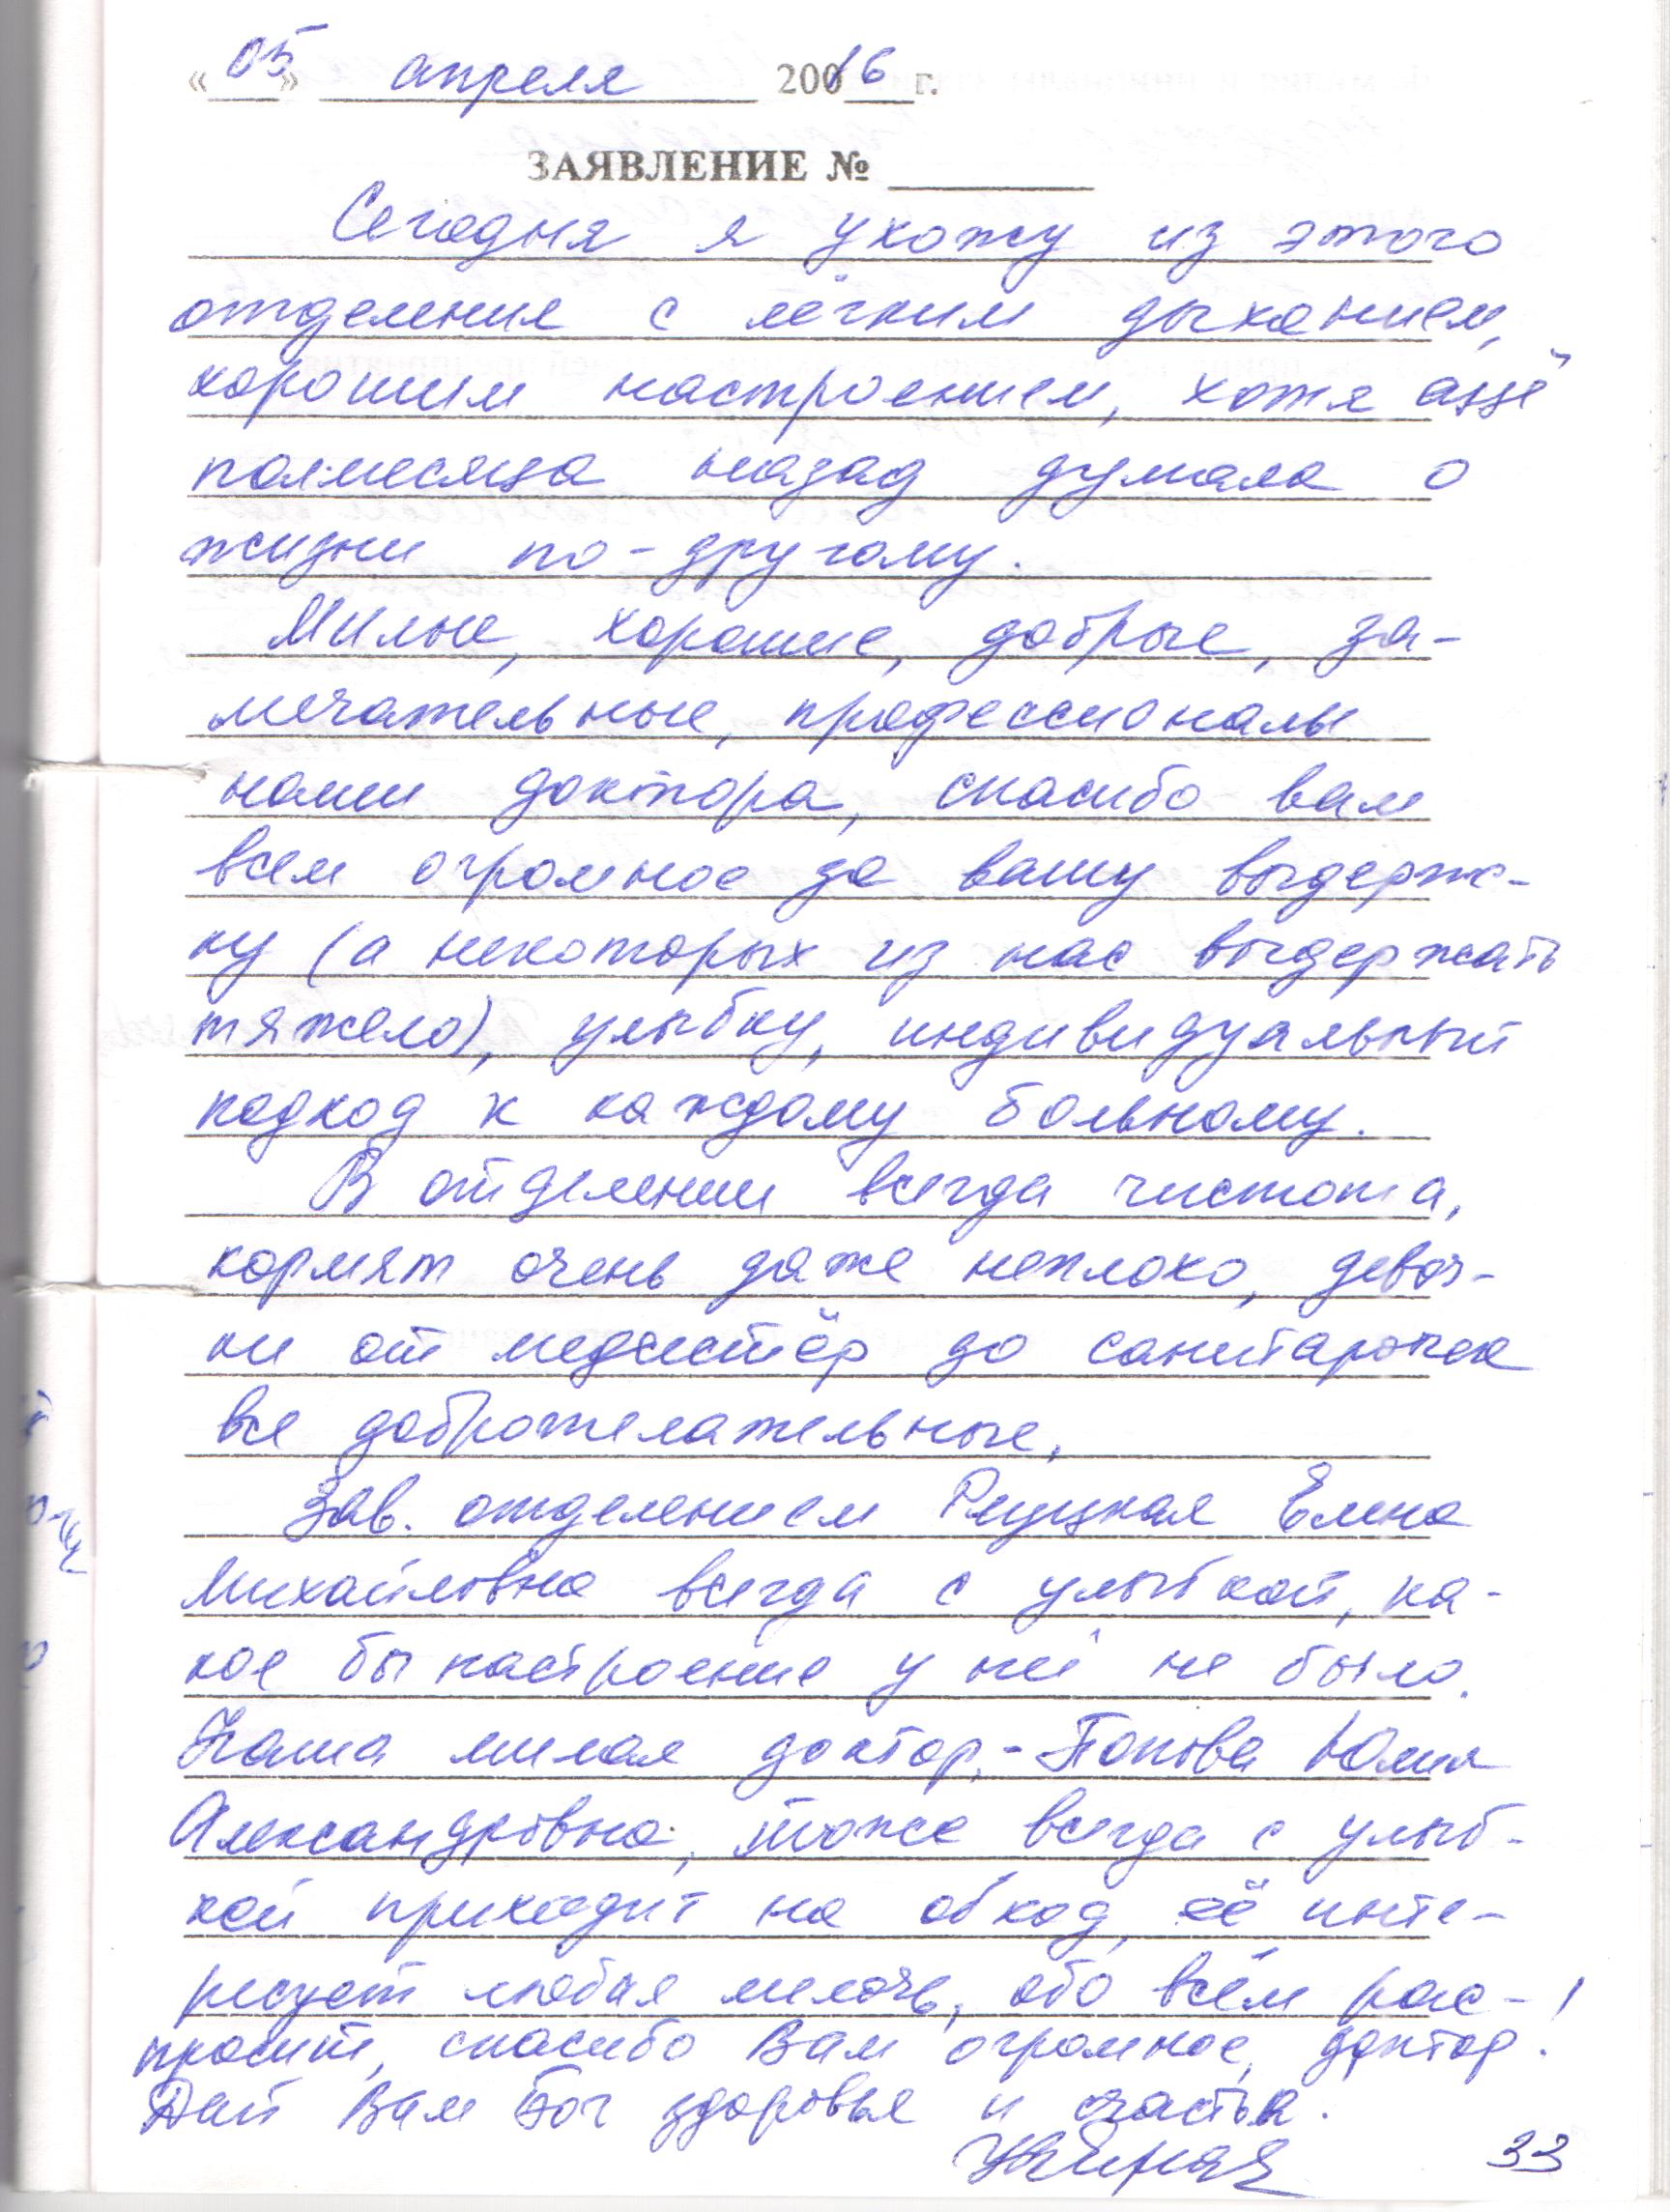 «05» апреля 20016 г.
ЗАЯВЛЕНИЕ №
Сегодня я ухожу из этого
отделения с лёгким дыханием,
хорошим настроением, хотя ещё
полмесяца назад думала о
жизни по-другому.
Милые, хорошие, добрые, за-
мечательные, профессионалы
наши доктора, спасибо вам
всем огромное за вашу выдерж-
ку (а некоторых из нас выдержать
тяжело), улыбку, индивидуальный
подход к каждому больному.
В отделении всегда чистота,
кормят очень даже неплохо, девоч-
ки от медсестёр до санитарочек
все доброжелательные,
Зав. отделением Елена
Михайловна всегда с улыбкой, ка-
кое бы настроение у неё не было.
Наша милая доктор,- Попова Юлия
Александровна, тоже всегда с улыб-
кой приходит на обход, её инте-
ресует любая мелочь, обо всём рас-
просит, спасибо Вам огромное, доктор!
Дай Вам Бог здоровья и счастья.
33